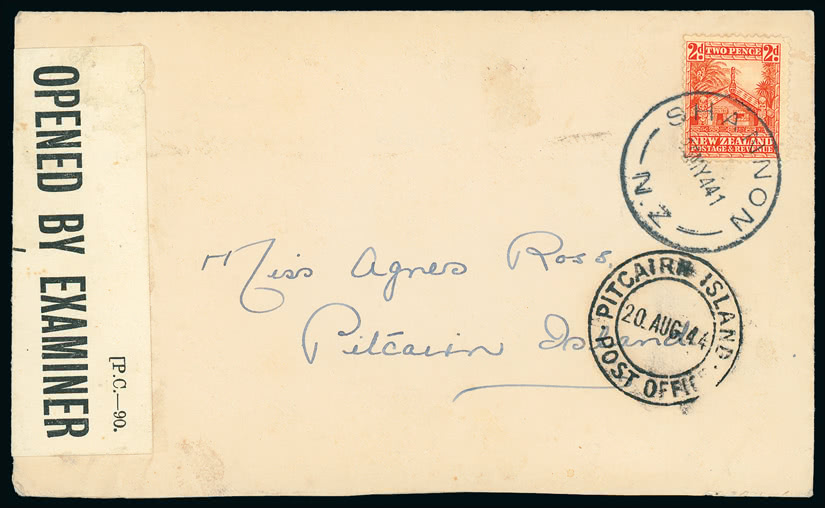 OPENED BY EXAMINER
[P.C.—90.
2d TWO PENCE 2d
NEW ZEALAND
POSTAGE & REVENUE
SHANNON
MY44
N.Z
Miss Agnes Ross.
Pitcairn Island
PITCAIRN ISLAND.
20. AUG 44
POST OFFICE